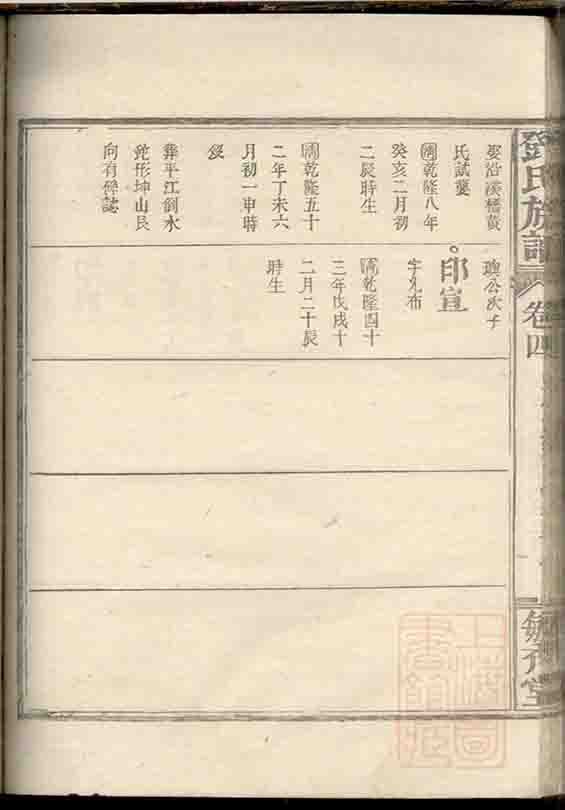 鄧氏族譜
卷四
娶沿溪橋黃
氏試襲
清乾隆八年
癸亥二月初
二辰時生
清乾隆五十
二年丁未六
月初一申時
歿
葬平江劍水
蛇形坤山艮
向有碑誌
璵公次子
印宣
字允布
清乾隆四十
三年戊戌十
二月二十辰
時生
上海圖書館藏